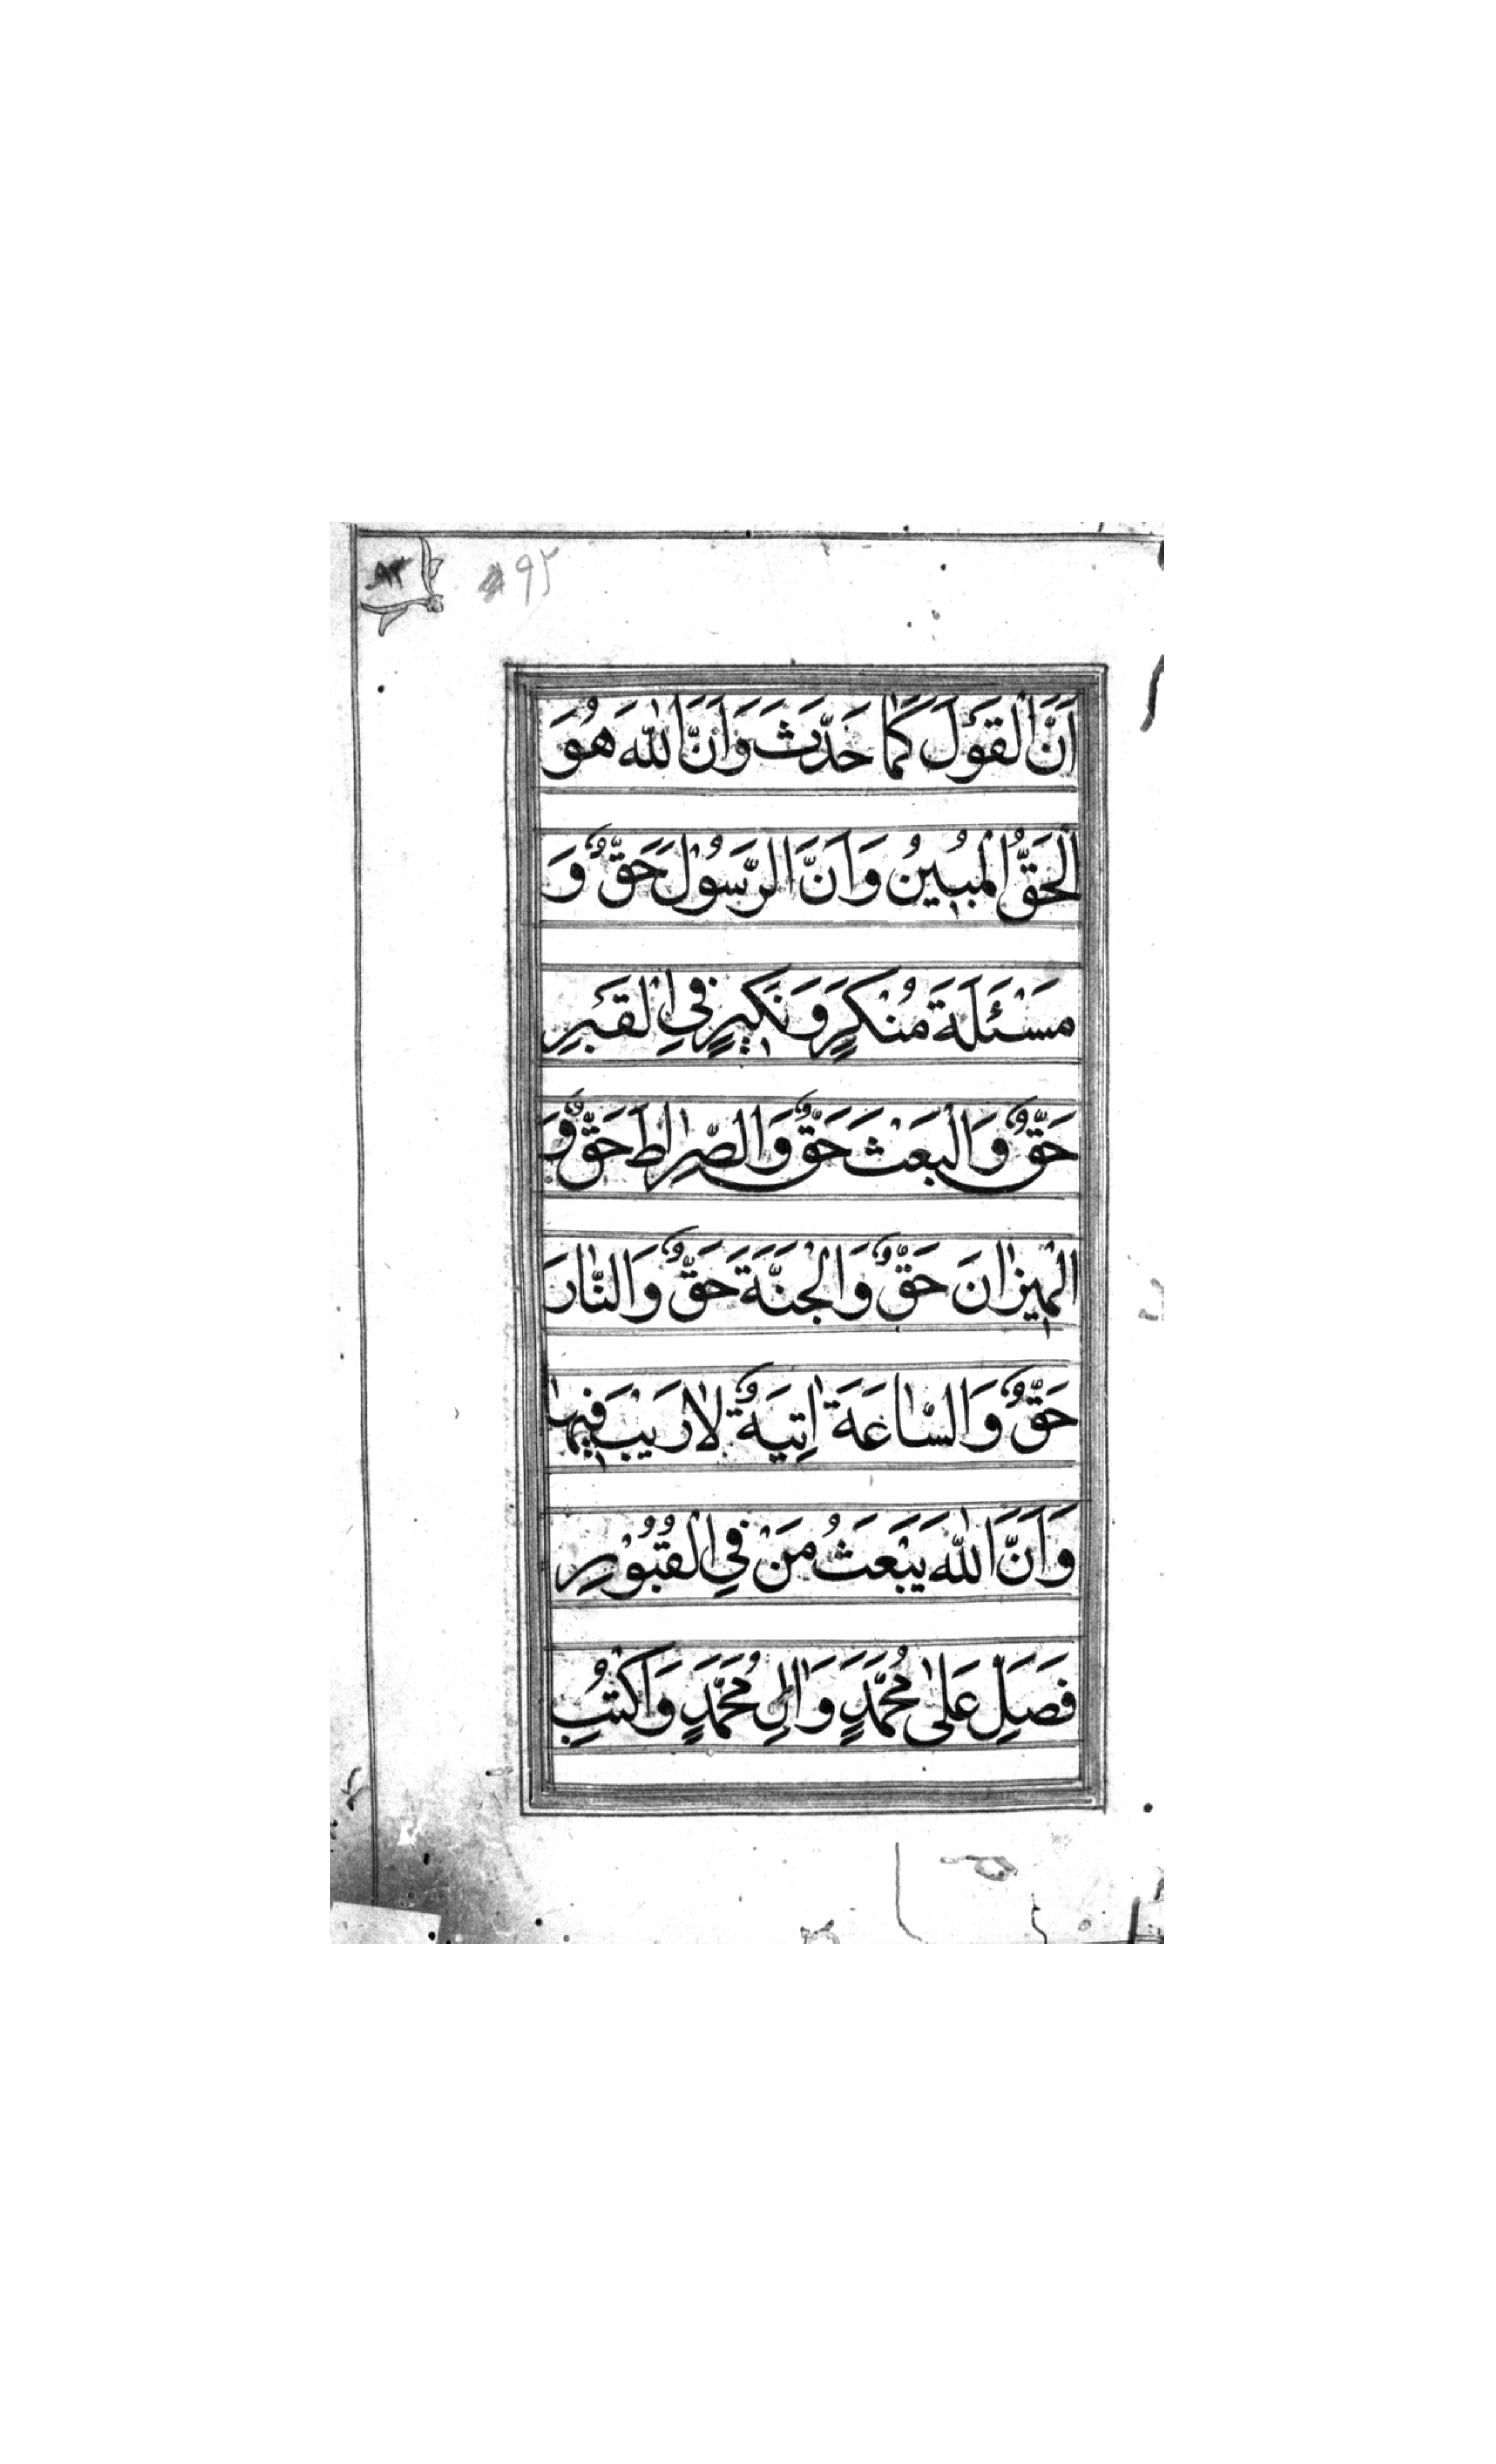 ۹۳ ۹۲
اَنَّ الْقَوْلَ كَمٰا حَدَّثَ وَاَنَّ اللّٰهَ هُوَ
الْحَقُّ الْمُبينُ وَاَنَّ الرَّسُوْلَ حَقٌّ وَ
مَسْئَلَةَ مُنْكَرٍ وَنَكيرٍ فِي الْقَبْرِ
حَقٌّ وَالْبَعْثَ حَقٌّ وَالصِّرٰاطَ حَقٌّ وَ
الْميزٰانَ حَقٌّ وَالْجَنَّةَ حَقٌّ وَالنّٰارَ
حَقٌّ وَالسّٰاعَةَ اٰتِيَةٌ لٰا رَيْبَ فيهٰا
وَاَنَّ اللّٰهَ يَبْعَثُ مَنْ فِي الْقُبُوْرِ
فَصَلِّ عَلىٰ مُحَمَّدٍ وَاٰلِ مُحَمَّدٍ وَاكْتُبِ